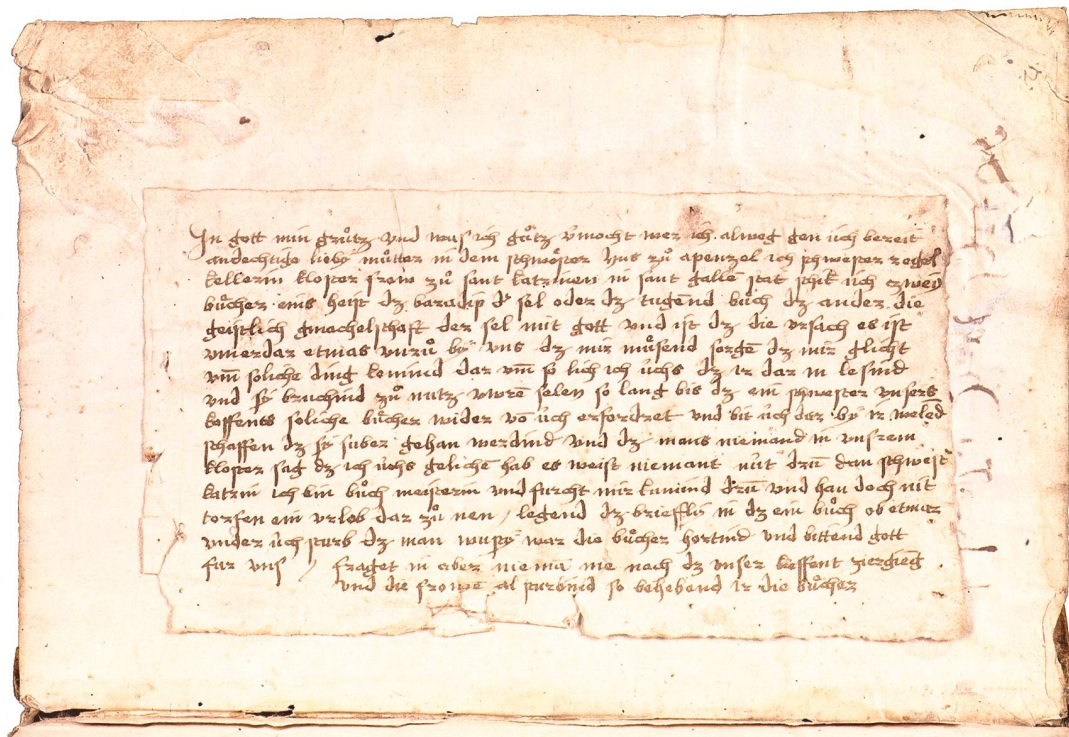 In gott min grůtz vnd was ich gůtz v̄mocht wer ich alweg gen üch bereit
andechtige lieby můtter in dem schwöster hus zů apenzel ich schwester regel
kellerin kloster frow zů sant katrinen in sant galle stat schik üch czwey
bůcher eins heist dz baradip dʳ sel oder dz tugend bůch dz ander die
geistlich gmechelschaft der sel mit gott vnd ist dz die vrsach es ist
vmerdar etwas vnrů by vns dz wir můsend sorgē dz wir glicht
vm̄ soliche ding komind dar vm̄ so lich ich üchs dz ir dar in lesind
vnd sy bruchind zů nutz vwrē selen so lang bis dz ein schwester vnsers
koffentz soliche bůcher wider vō üch erfordret vnd bit üch dar by ir welēd
schaffen dz sy suber gehan werdind vnd dz mans niemand in vnsrem
kloster sag dz ich üchs gelichē hab es weist niemant nüt drū dan schwest
katrin ich bin bůch meisterin vnd furcht wir kumind drū vnd han doch nit
torfen ein vrlob dar zů nen / legend dz briefly in dz ein bůch ob etwar
vnder üch sturb dz man wusty war die bůcher hortind vnd bittend gott
fur vns / fraget in aber niemā nie nach dz vnser koffent ziergieng
vnd die frowē al sturbind so behebend ir die bůcher